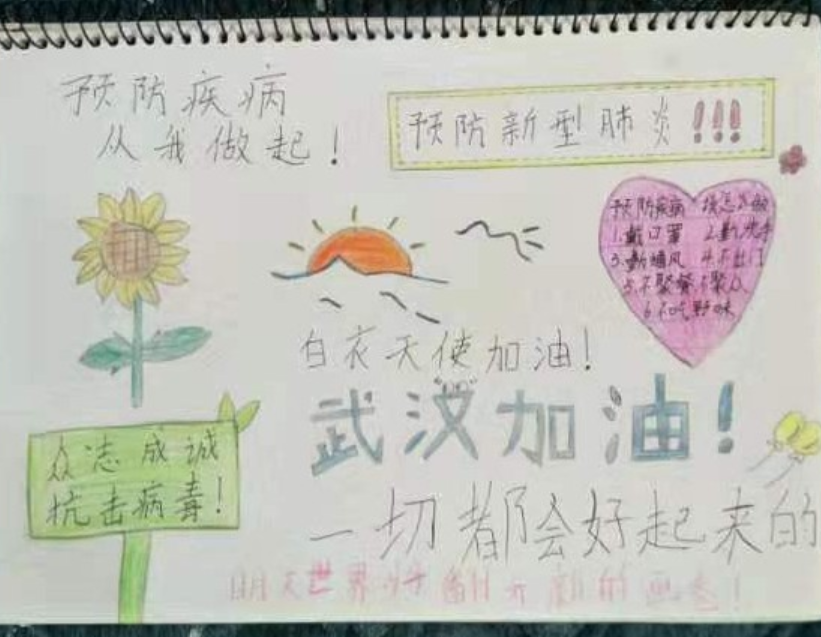 预防疾病
从我做起！
预防新型肺炎!!!
预防疾病 该怎么做
1.戴口罩 2.勤洗手
3.勤通风 4.不出门
5.不聚餐不聚众
6.不吃野味
白衣天使加油！
武汉加油！
众志成诚
抗击病毒！
一切都会好起来的
明天世界将翻开新的画卷！